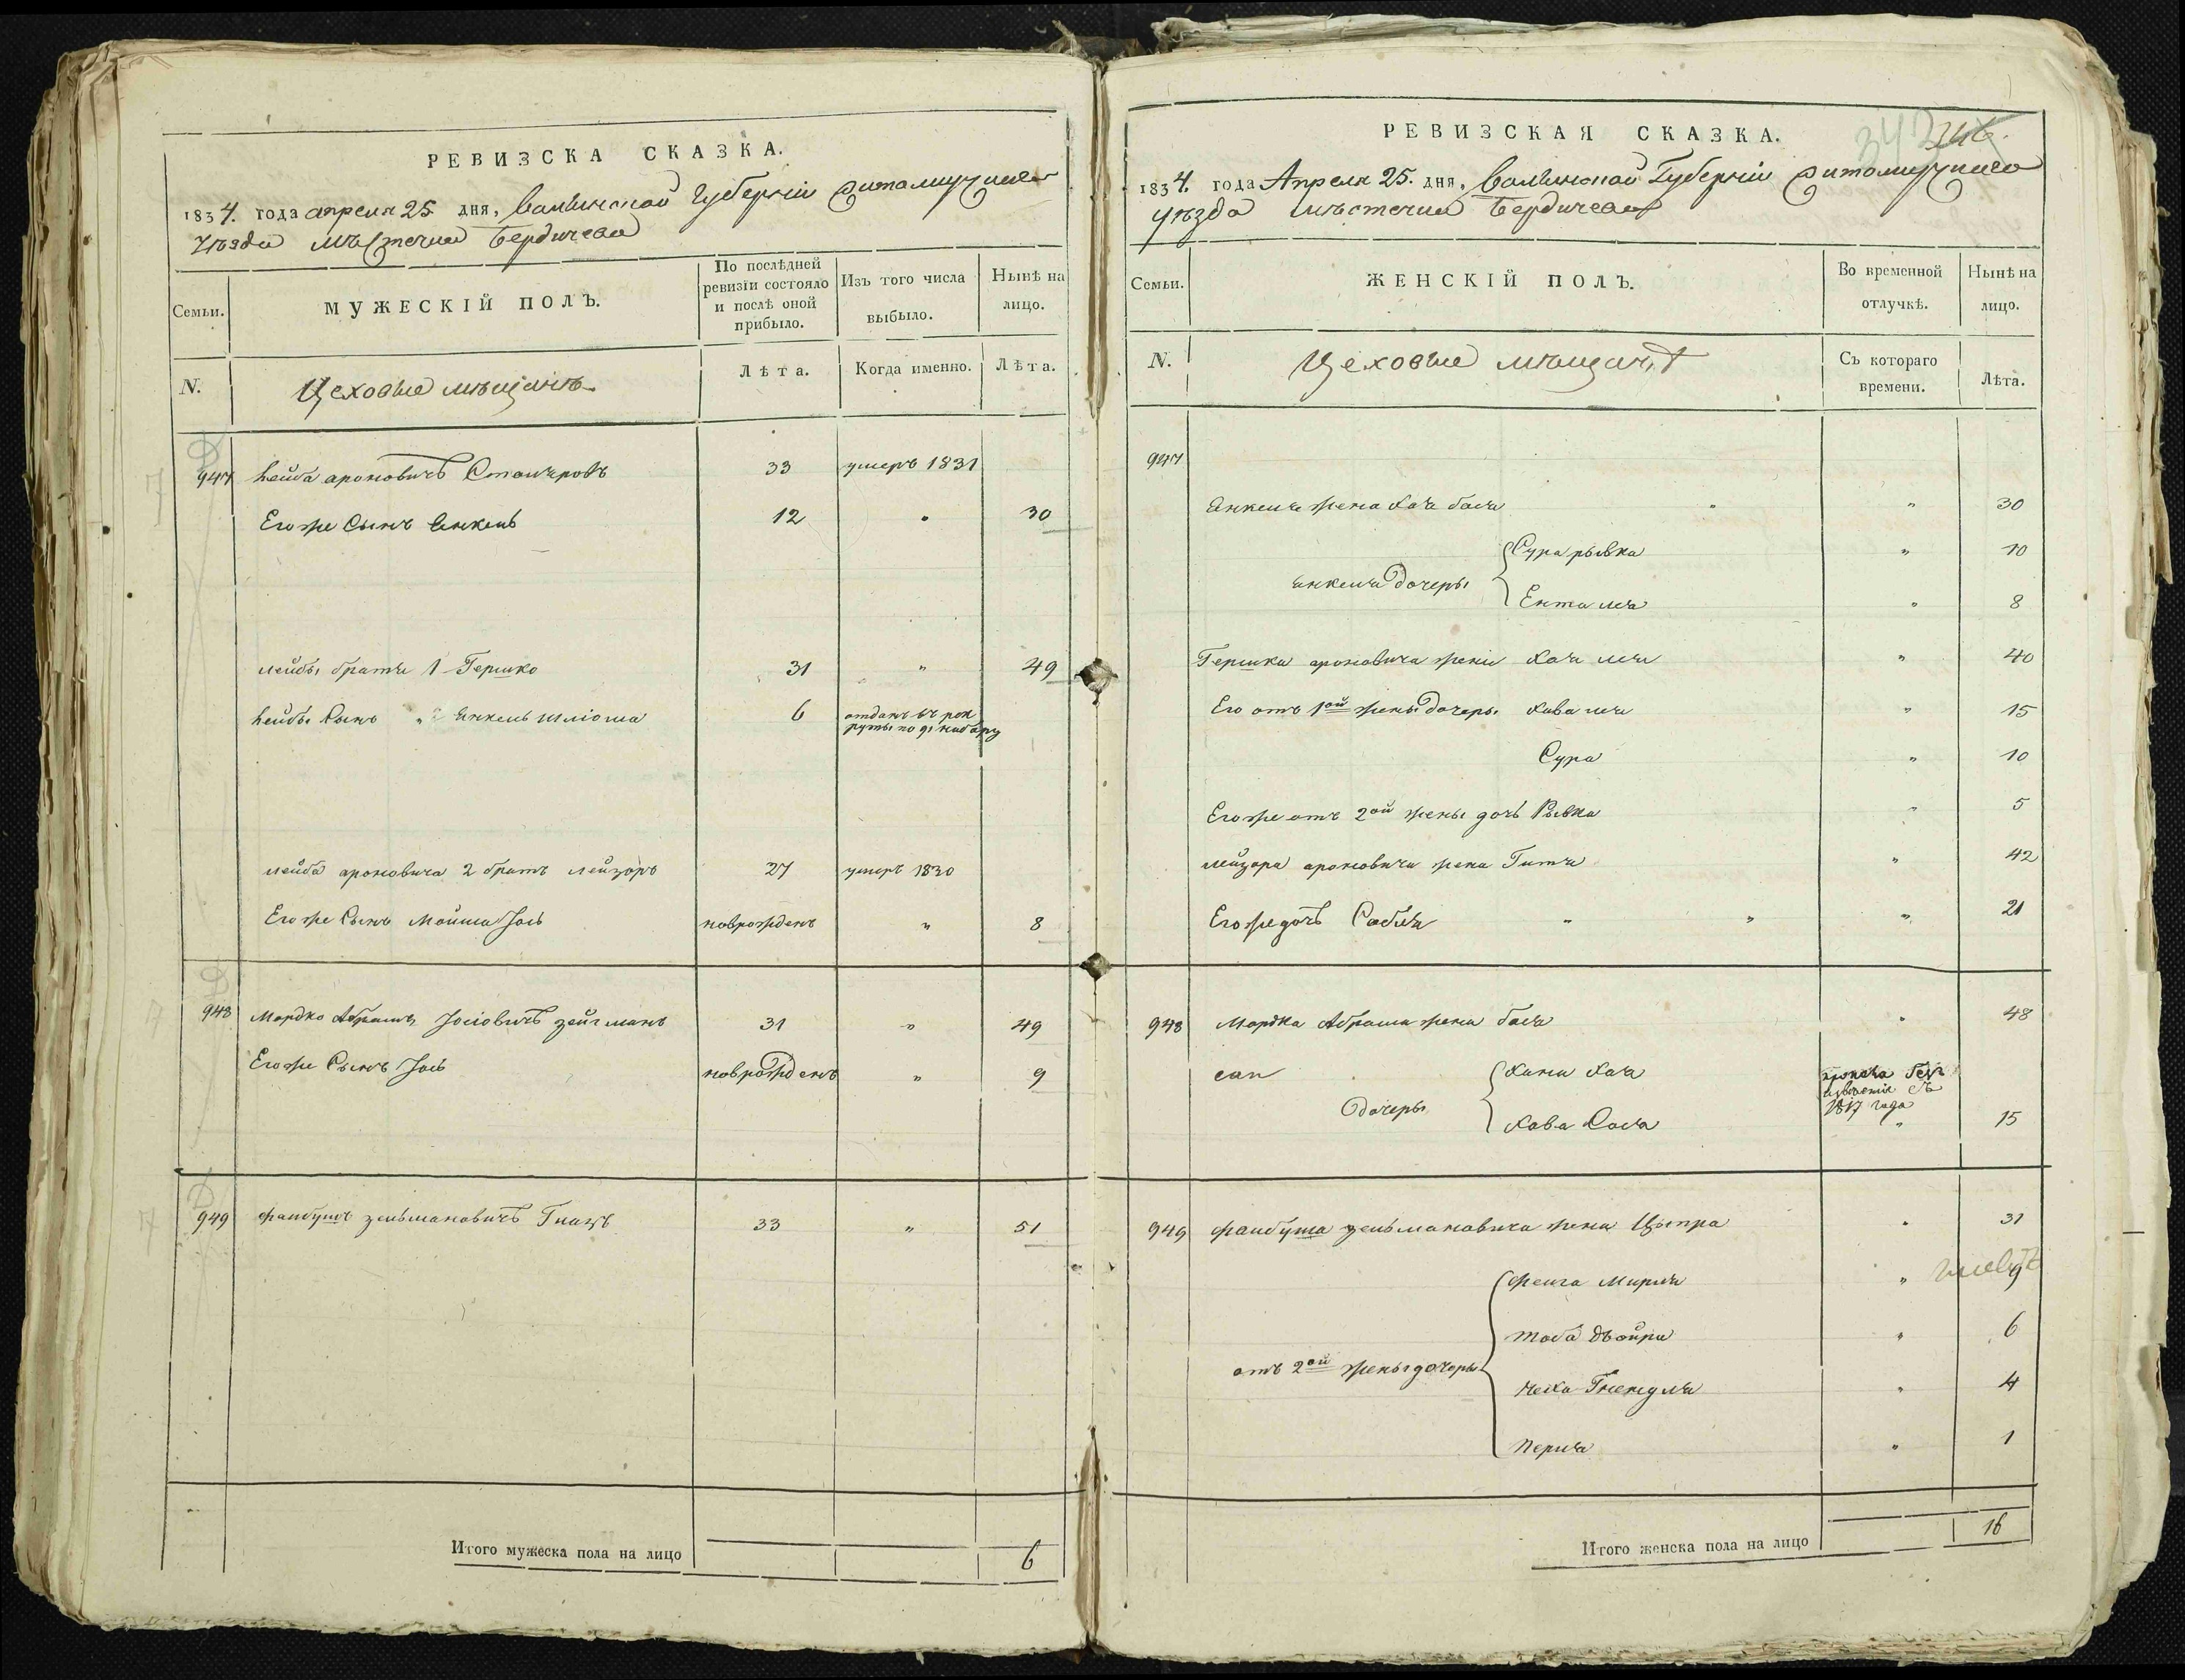 РЕВИЗСКА СКАЗКА.
1834. года апреля 25 дня, Волынской Губерніи Житомирскаго
Уѣзда мѣстечка Бердичева
Семьи.
МУЖЕСКІЙ ПОЛЪ.
По послѣдней ревизіи состояло и послѣ оной прибыло.
Изъ того числа выбыло.
Нынѣ на лицо.
N.
Цеховые мѣщанъ
Лѣта.
Когда именно.
Лѣта.
947 Лейба ароновичъ 33 умеръ 1831
Его же Сынъ Янкель 12 " 30
лейбы братья 1 Гершко 31 " 49
Лейбы Сынъ " 2 Янкель шліома 6 отданъ въ рек
руты по 91 набору
лейба ароновича 2 братъ лейзоръ 27 умеръ 1830
Его же Сынъ Мойша Іось новрожденъ " 8
948 Мордко Абрамъ Іосіовичъ зейгманъ 31 " 49
Его же Сынъ Іось новрожденъ " 9
949 файбушъ зельмановичъ 33 " 51
Итого мужеска пола на лицо 6
РЕВИЗСКАЯ СКАЗКА.
342
1834. года Апреля 25. дня, Волынской Губерніи Житомирскаго
уѣзда мѣстечка Бердичева
Семьи.
ЖЕНСКІЙ ПОЛЪ.
Во временной отлучкѣ.
Нынѣ на лицо.
N.
Цеховые мѣщанъ
Съ котораго времени.
Лѣта.
947
Янкеля жена Хая бася " " 30
Сура рывка " 10
янкеля дочеры
Ента лея " 8
Гершка ароновича жена Хая лея " 40
Его отъ 1ой жены дочеры Хава лея " 15
Сура " 10
Его же отъ 2ой жены дочь Рывка " 5
лейзора ароновича жена Гитя " 42
Его же дочь " " " 21
948 Мордка Абрама жена бася " 48
Хана Хая пропала безъ
извѣстія съ
1817 года
дочеры
Хава Хася " 15
949 файбуша зельмановича жена Ципра " 31
фейга Мирля " 9
тоба двойра " 6
отъ 2ой жены дочеры
" 4
перля " 1
Итого женска пола на лицо 16